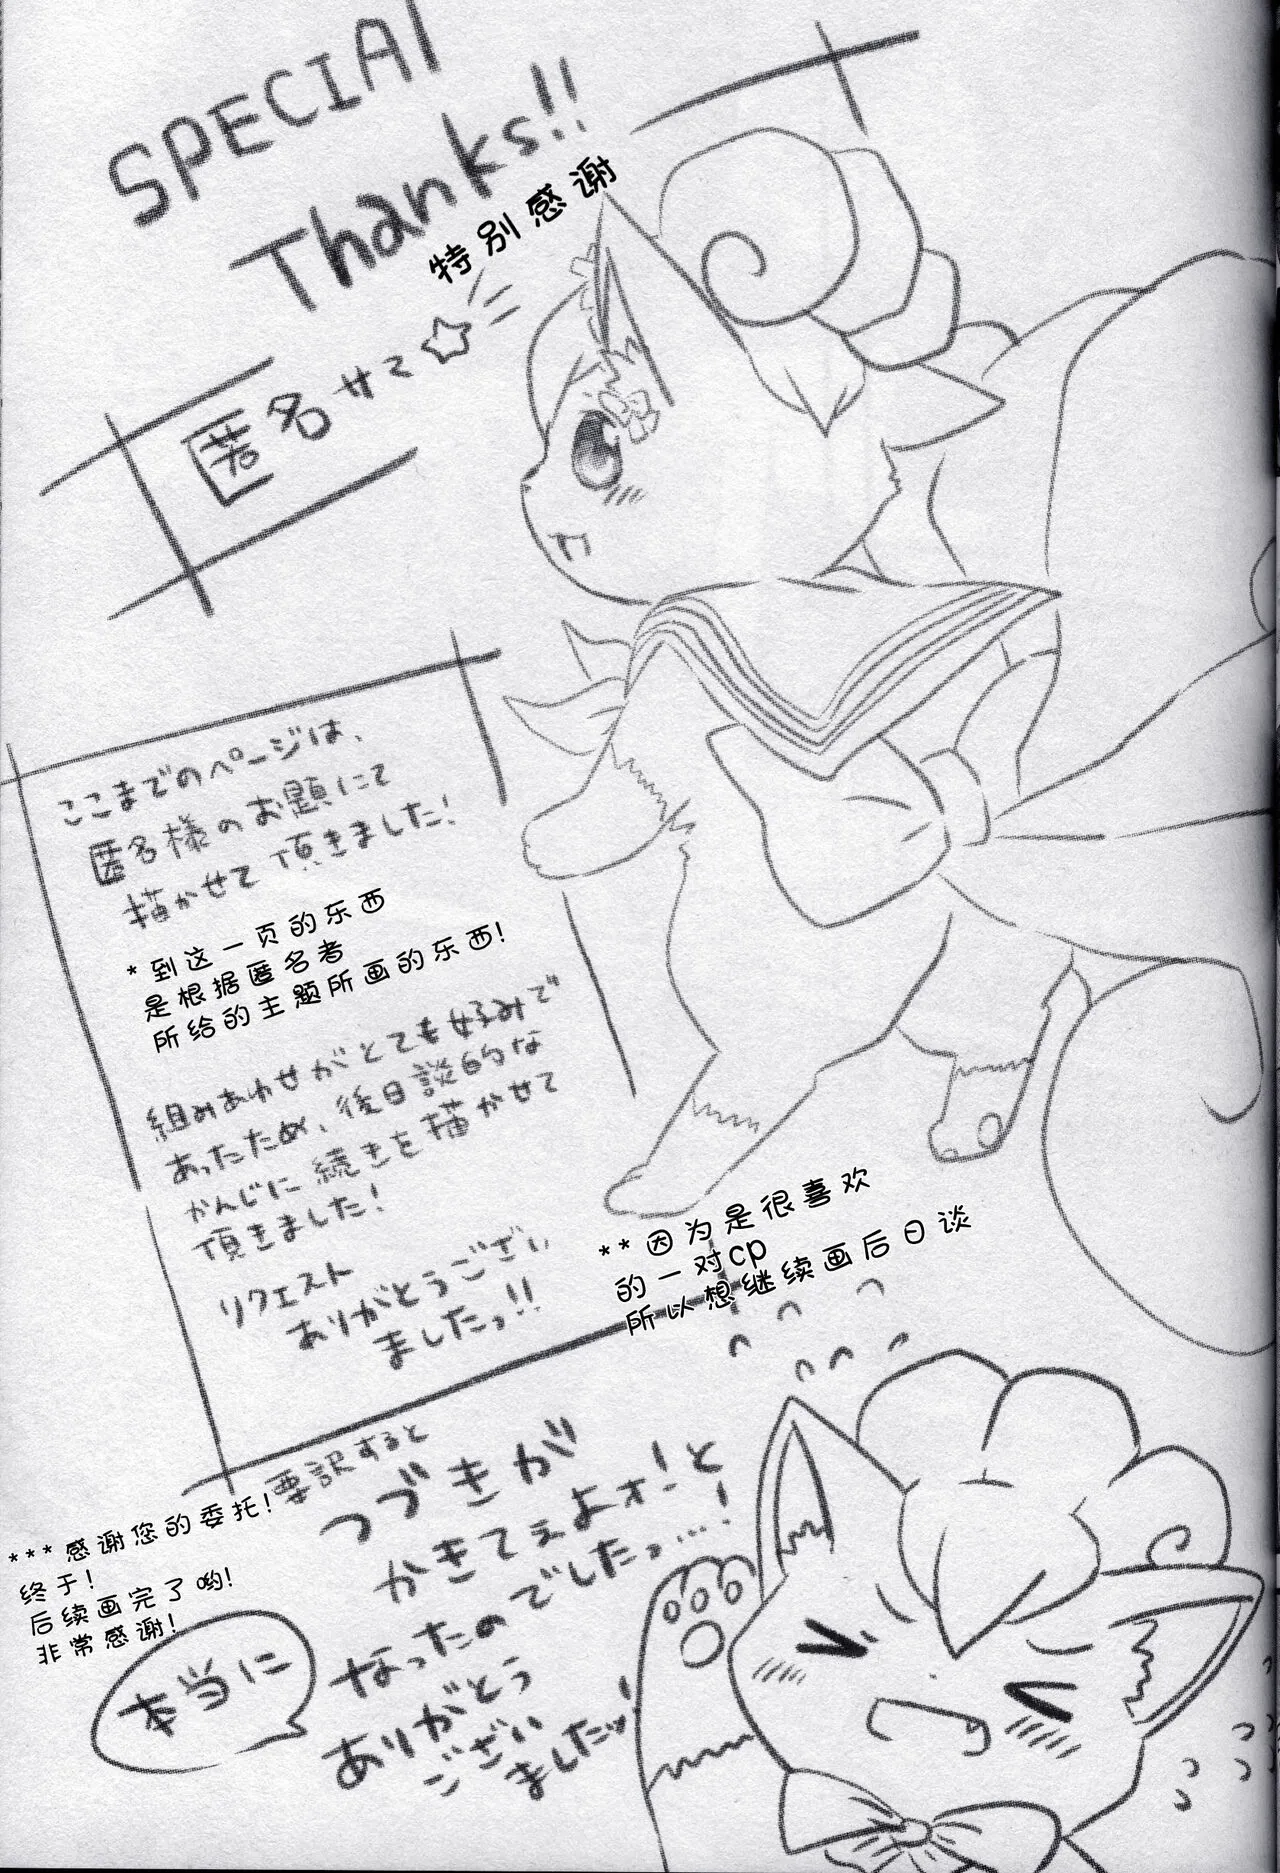 SPECIAL
Thanks!!
特别感谢
匿名サマ☆
ここまでのページは、
匿名様のお題にて
描かせて頂きました!
*到这一页的东西
是根据匿名者
所给的主题所画的东西!
組みあわせがとても好みで
あったため、後日談的な
かんじに続きを描かせて
頂きました!
リクエスト
ありがとうござい
ましたっ!!
**因为是很喜欢
的一对cp
所以想继续画后日谈
要訳すると
つづきが
かきてぇよォ!と
なったのでしたっ…!
***感谢您的委托!
终于!
后续画完了哟!
非常感谢!
本当に
ありがとう
ござい
ましたッ!